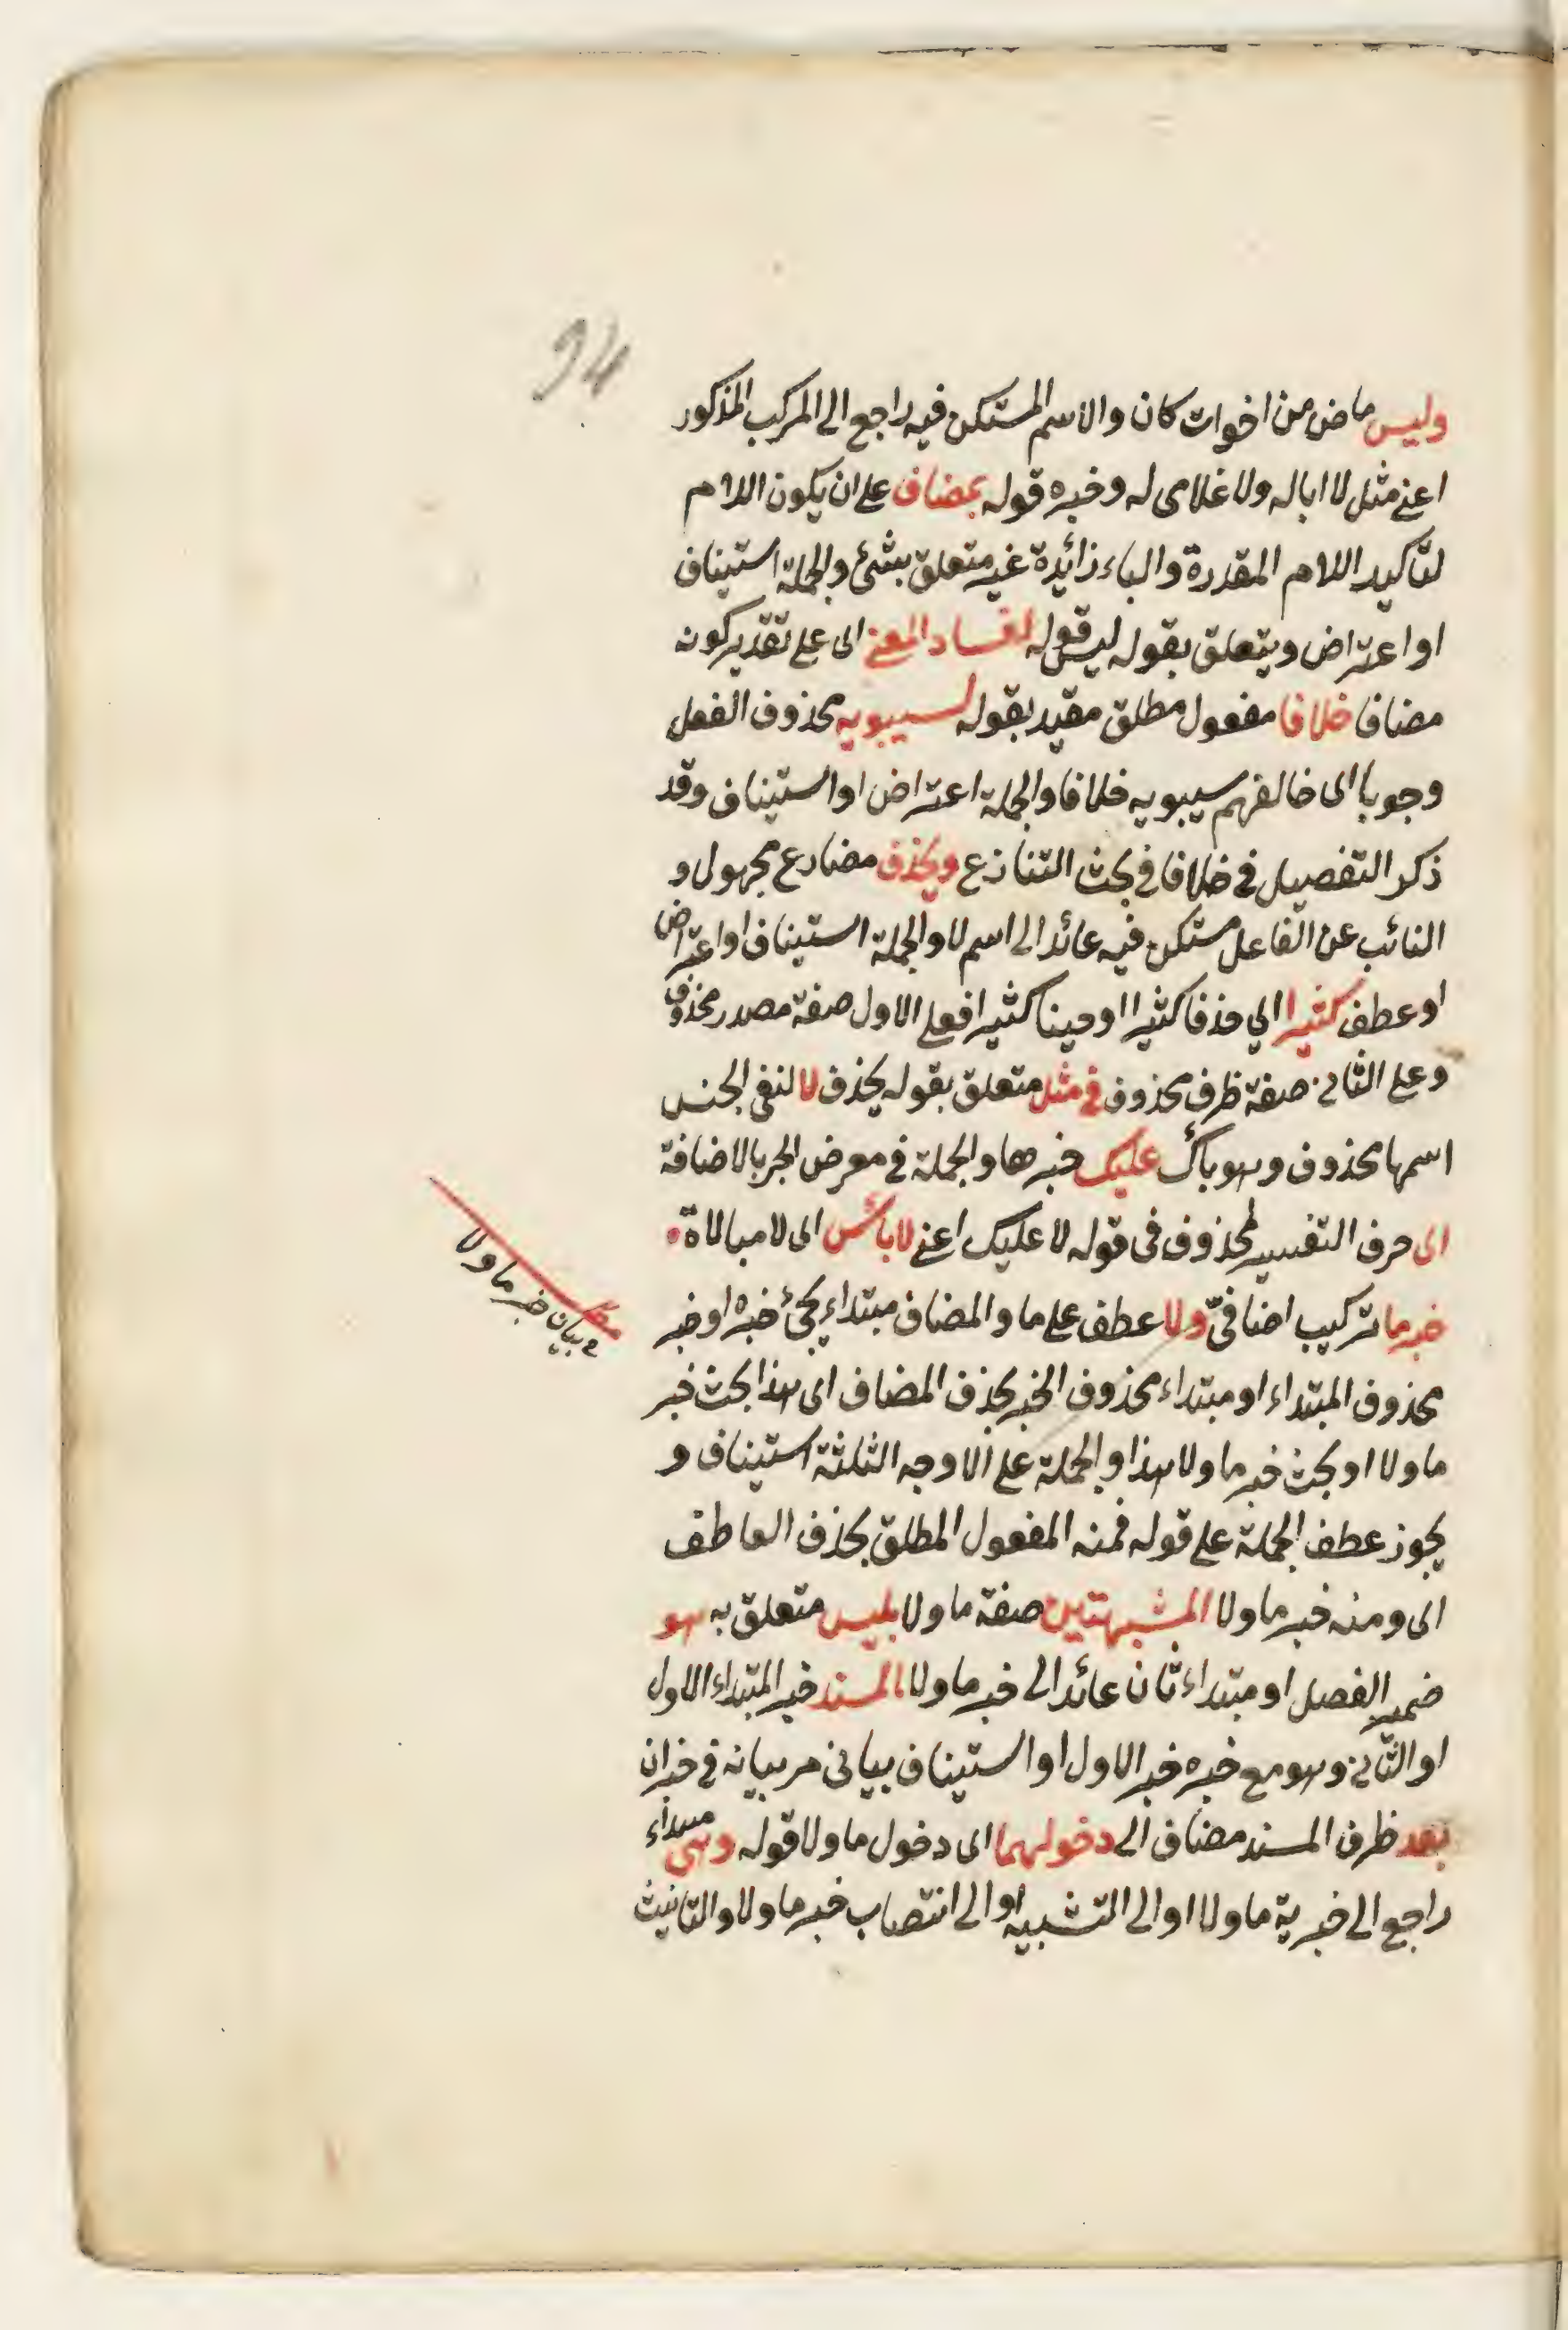 94
وليس ماض من اخوات كان والاسم المستكن فيه راجع الى المركب المذكور
اعنى مثل لا اباله ولا غلامى له وخبره قوله بمضاف على ان يكون اللام
لتأكيد اللام المقدرة والباء زائدة غير متعلق بشئ والجملة استيناف
او اعتراض ويتعلق بقوله ليس قوله لفساد المعنى اى على تقدير كونه
مضافا خلافا مفعول مطلق مقيد بقوله لسيبويه محذوف الفعل
وجوبا اى خالفهم سيبويه خلافا والجملة اعتراض او استيناف وقد
ذكر التفصيل فى خلافا فى بحث التنازع ويحذف مضارع مجهول و
النائب عن الفاعل مستكن فيه عائد الى اسم لا والجملة استيناف او اعتراض
او عطف كثيرا اى حذفا كثيرا او حينا كثيرا فعلى الاول صفة مصدر محذوف
وعلى الثانى صفة ظرف محذوف فى مثل متعلق بقوله يحذف لا لنفى الجنس
اسمها محذوف وهو بأس عليك خبرها والجملة فى معرض الجر بالاضافة
اى حرف التفسير لمحذوف فى قوله لا عليك اعنى لا بأس اى لا مبالاة
خبر ما تركيب اضافىّ ولا عطف على ما والمضاف مبتداء يجئ خبره او خبر
محذوف المبتداء او مبتداء محذوف الخبر بحذف المضاف اى هذا بحث خبر
ما ولا او بحث خبر ما ولا هذا والجملة على الاوجه الثلثة استيناف و
يجوز عطف الجملة على قوله فمنه المفعول المطلق بحذف العاطف
اى ومنه خبر ما ولا المشبهتين صفة ما ولا بليس متعلق به هو
ضمير الفصل او مبتداء ثان عائد الى خبر ما ولا المسند خبر المبتداء الاول
او الثانى وهو مع خبره خبر الاول او استيناف بيانى مر بيانه فى خبر ان
بعد ظرف المسند مضاف الى دخولهما اى دخول ما ولا قوله وهى مبتداء
راجع الى خبرية ما ولا او الى التشبيه او الى انتصاب خبر ما ولا والتأنيث
بيان خبر ما ولا